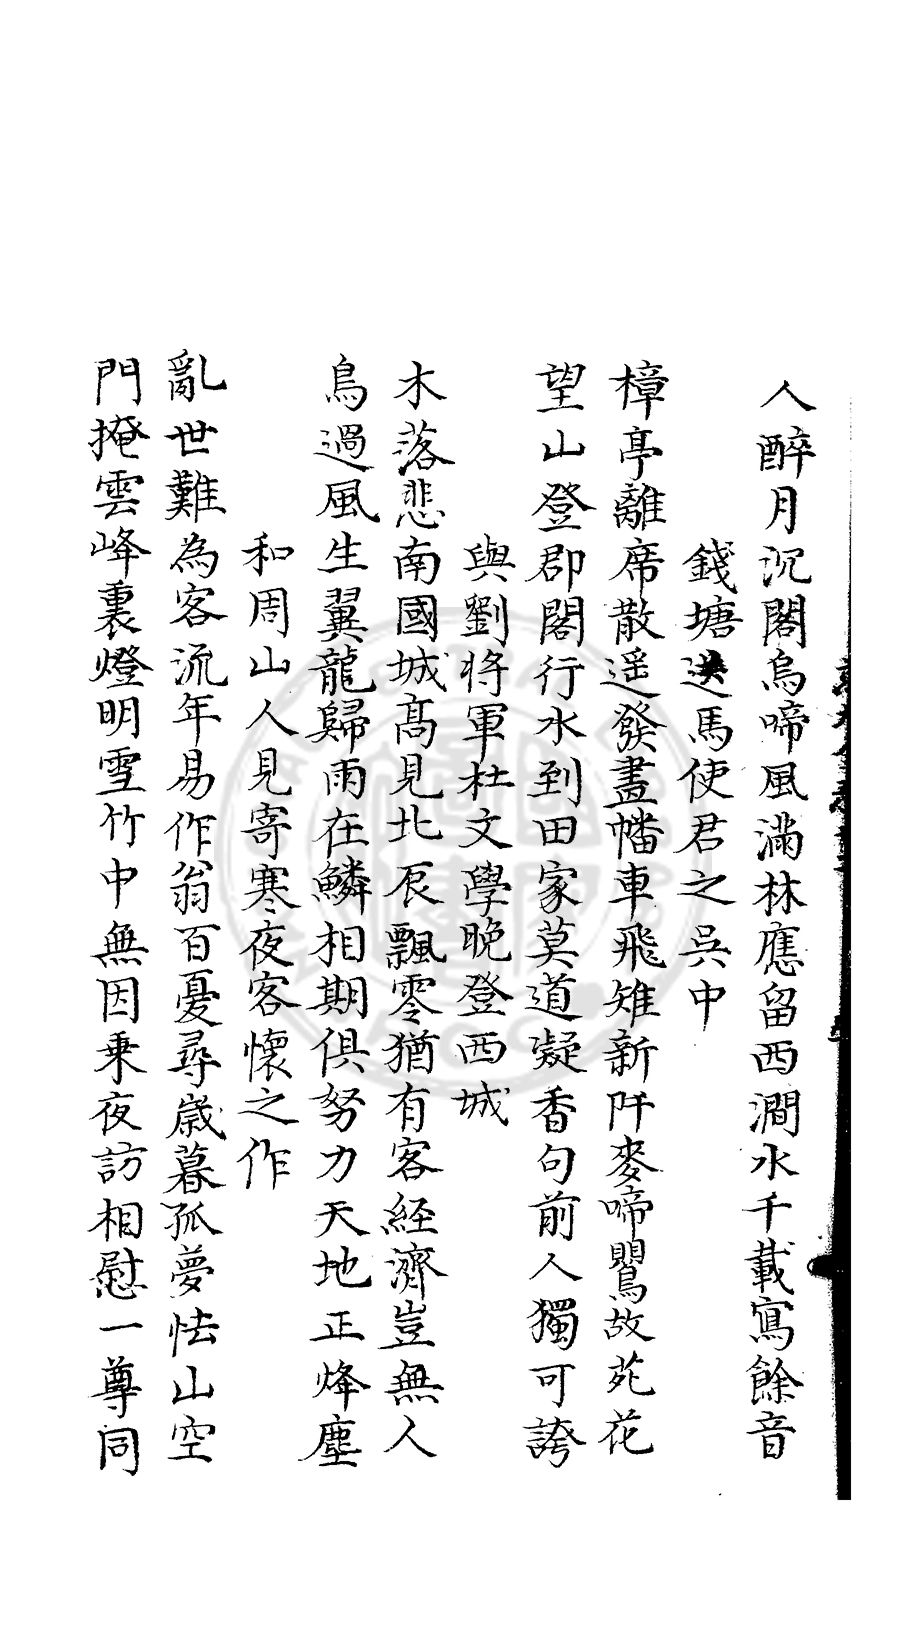 人醉月沉閣烏啼風滿林應留西澗水千載寫餘音
錢塘送馬使君之吳中
樟亭離席散遥發畫幡車飛雉新阡麥啼鸎故苑花
望山登郡閣行水到田家莫道凝香句前人獨可誇
與劉将軍杜文學晚登西城
木落悲南國城髙見北辰飄零猶有客經濟豈無人
鳥過風生翼龍歸雨在鱗相期俱努力天地正烽塵
和周山人見寄寒夜客懷之作
亂世難為客流年易作翁百憂尋嵗暮孤夢怯山空
門掩雲峰裏燈明雪竹中無因乗夜訪相慰一尊同